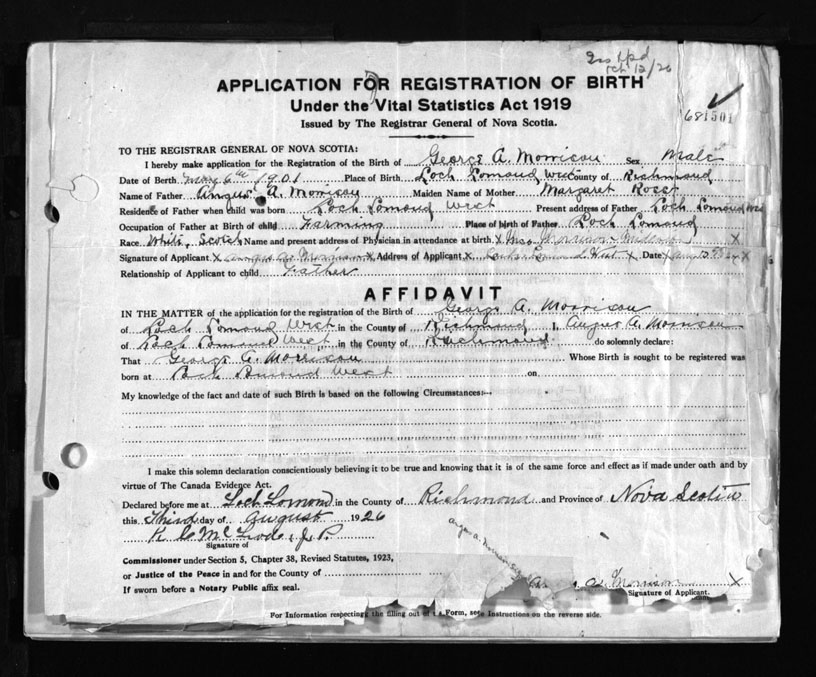 12/26
APPLICATION FOR REGISTRATION OF BIRTH
Under the Vital Statistics Act 1919
Issued by The Registrar General of Nova Scotia.
681501
TO THE REGISTRAR GENERAL OF NOVA SCOTIA:
I hereby make application for the Registration of the Birth of George A. Morrison Sex Male
Date of Birth 6th 1901 Place of Birth Loch Lomond West County of Richmond
Name of Father Angus A. Morrison Maiden Name of Mother Margaret Ross
Residence of Father when child was born Loch Lomond West Present address of Father Loch Lomond West
Occupation of Father at Birth of child Farming Place of birth of Father Loch Lomond
Race White, Scotch Name and present address of Physician in attendance at birth X X
Signature of Applicant X Angus A. Morrison X Address of Applicant X Loch Lomond West X Date X
Relationship of Applicant to child Father
AFFIDAVIT
IN THE MATTER of the application for the registration of the Birth of George A. Morrison
of Loch Lomond West in the County of Richmond I, Angus A. Morrison
of Loch Lomond West in the County of Richmond do solemnly declare:
That George A. Morrison Whose Birth is sought to be registered was
born at Loch Lomond West on
My knowledge of the fact and date of such Birth is based on the following Circumstances:—
I make this solemn declaration conscientiously believing it to be true and knowing that it is of the same force and effect as if made under oath and by
virtue of The Canada Evidence Act.
Declared before me at Loch Lomond in the County of Richmond and Province of Nova Scotia
this Third day of August 1926
K. C. McLeod, J. P.
Signature of
Commissioner under Section 5, Chapter 38, Revised Statutes, 1923,
or Justice of the Peace in and for the County of
If sworn before a Notary Public affix seal.
A. Morrison X
Signature of Applicant.
For Information respecting the filling out of Form, see Instructions on the reverse side.